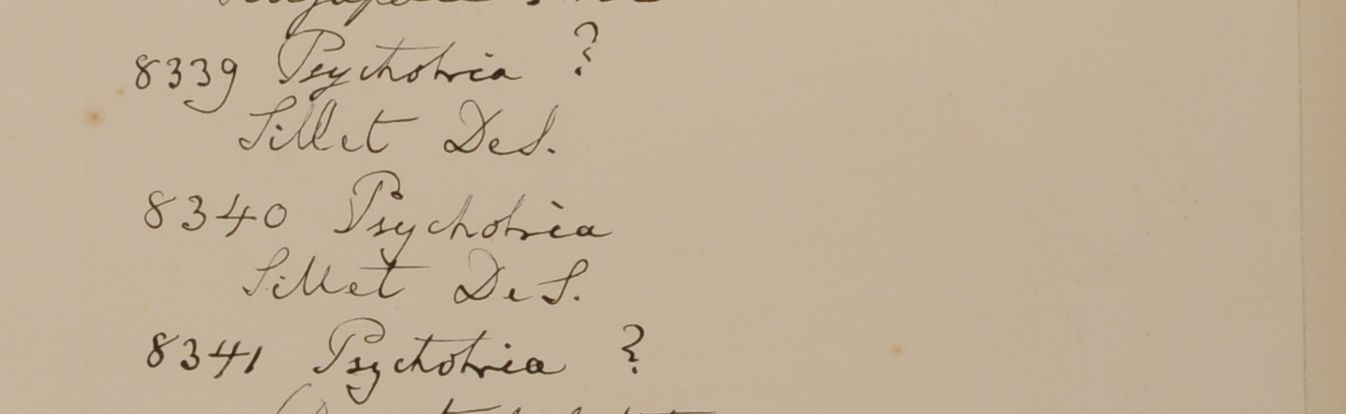 8339 Psychotria ?
Sillet DeS.
8340 Psychotria
Sillet DeS.
8341 Psychotria ?